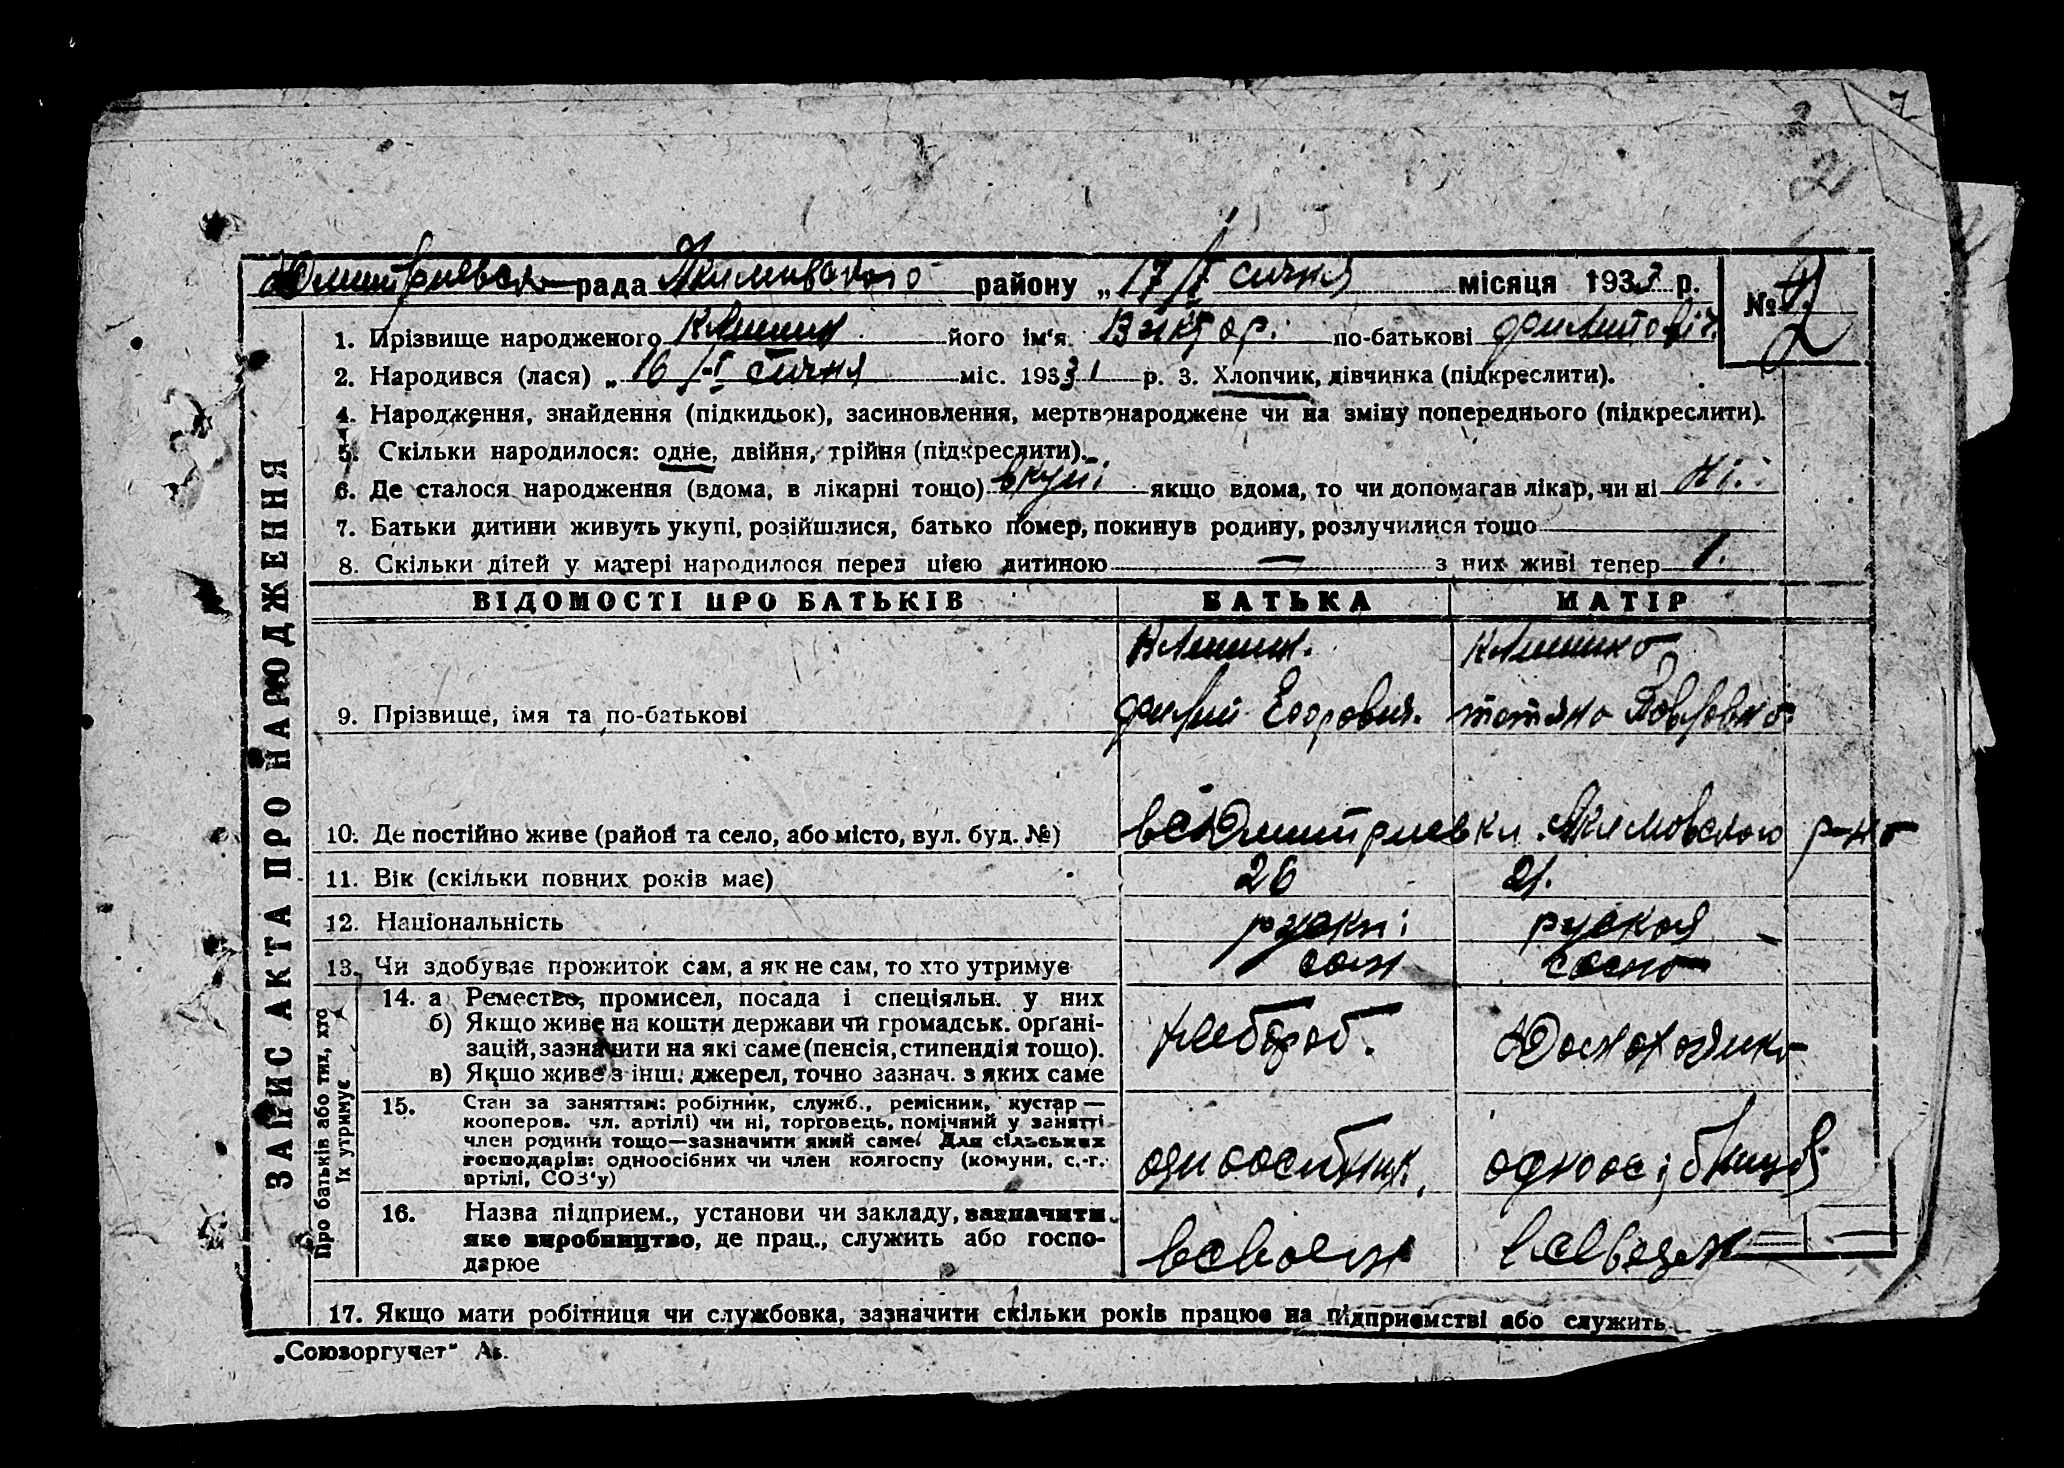 7
21
Дмитриевска рада Якимівського району „17/I січня місяця 1933 р. № 2
1. Прізвище народженого Клишин його ім'я Віктор. по-батькові Филипович
2. Народився (лася) „16/I січня міс. 1933 р. 3. Хлопчик, дівчинка (підкреслити).
4. Народження, знайдення (підкидьок), засиновлення, мертвонароджене чи на зміну попереднього (підкреслити).
5. Скільки народилося: одне, двійня, трійня (підкреслити).
6. Де сталося народження (вдома, в лікарні тощо) якщо вдома, то чи допомагав лікар, чи ні Ні.
7. Батьки дитини живуть укупі, розійшлися, батько помер, покинув родину, розлучилися тощо
8. Скільки дітей у матері народилося перед цією дитиною — з них живі тепер 1.
ЗАПИС АКТА ПРО НАРОДЖЕННЯ
ВІДОМОСТІ ПРО БАТЬКІВ БАТЬКА МАТІР
Клишин. Клишина
9. Прізвище, імя та по-батькові Филип Егорович. Татяна Павловна
10. Де постійно живе (район та село, або місто, вул. буд. №) в с Дмитриевки Якимовского р-на
11. Вік (скільки повних років має) 26 21.
12. Національність руски руская
13. Чи здобуває прожиток сам, а як не сам, то хто утримує сам сама
Про батьків або тих, хто їх утримує
14. а Ремество, промисел, посада і спеціяльн. у них
б) Якщо живе на кошти держави чи громадськ. орґані-
зацій, зазначити на які саме (пенсія, стипендія тощо).
в) Якщо живе з інш. джерел, точно зазнач. з яких саме
хлебороб. Домохозяйка
15. Стан за заняттям: робітник, служб., ремісник, кустар —
кооперов. чл. артілі) чи ні, торговець, помічний у занятті
член родини тощо—зазначити який саме. Для сільських
господарів: одноосібних чи член колгоспу (комуни, с.-г.
артілі, СОЗ'у)
одноосібник. одноосібниця
16. Назва підприєм., установи чи закладу, зазначити
яке виробництво, де прац., служить або госпо-
дарюе
в своем
17. Якщо мати робітниця чи службовка, зазначити скільки років працює на підприємстві або служить
„Союзоргучет“